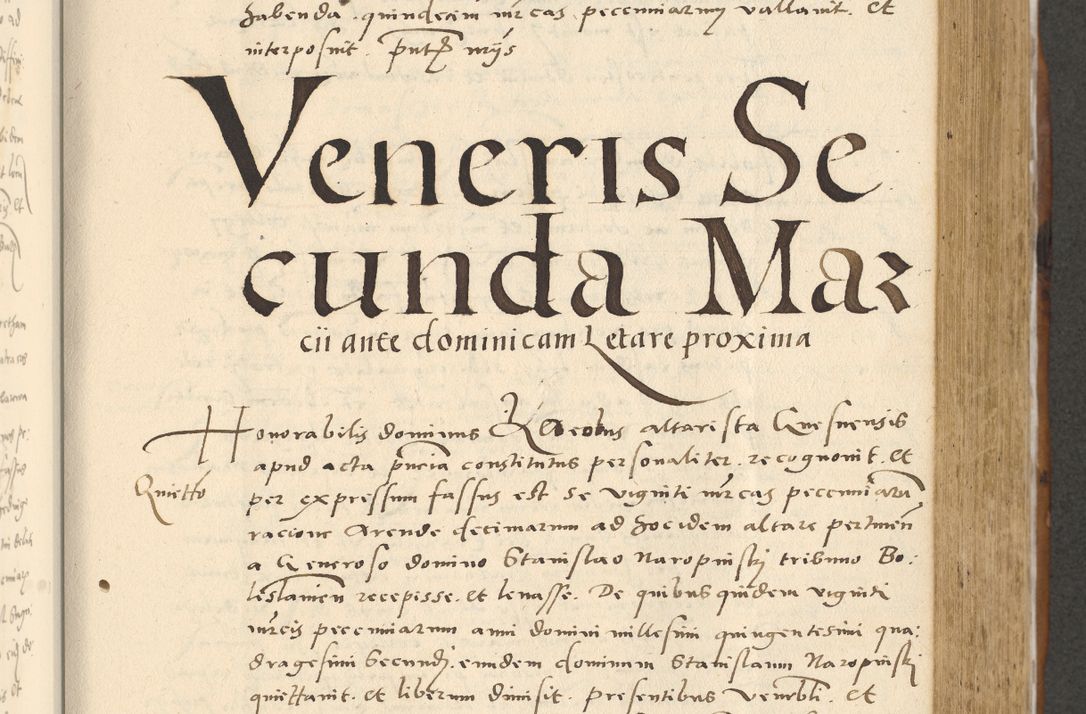 habenda . quindecim mrcas pecuniarum vallavit . et
interposuit . pntibus mriis
Veneris Se
cunda Mar
cii ante dominicam Letare proxima
Honorabilis dominus Jacobus altarista Gnesnensis
apud acta pncia constitutus personaliter . recognovit . et
Quietto
per expressum fassus est se viginti mrcas pecuniarum
racione Arende decimarum ad hocidem altare pertinen
a Generoso domino Stanislao Naropinskj tribuno Bo:
leslamen recepisse . et levasse . De quibus quidem viginti
mrcis pecuniarum anni domini millesimi quingentesimi qua:
dragesimi secundj . eundem dominum Stanislaum Naropinskj
quiettavit . et liberum dimisit . presentibus venrbli . et